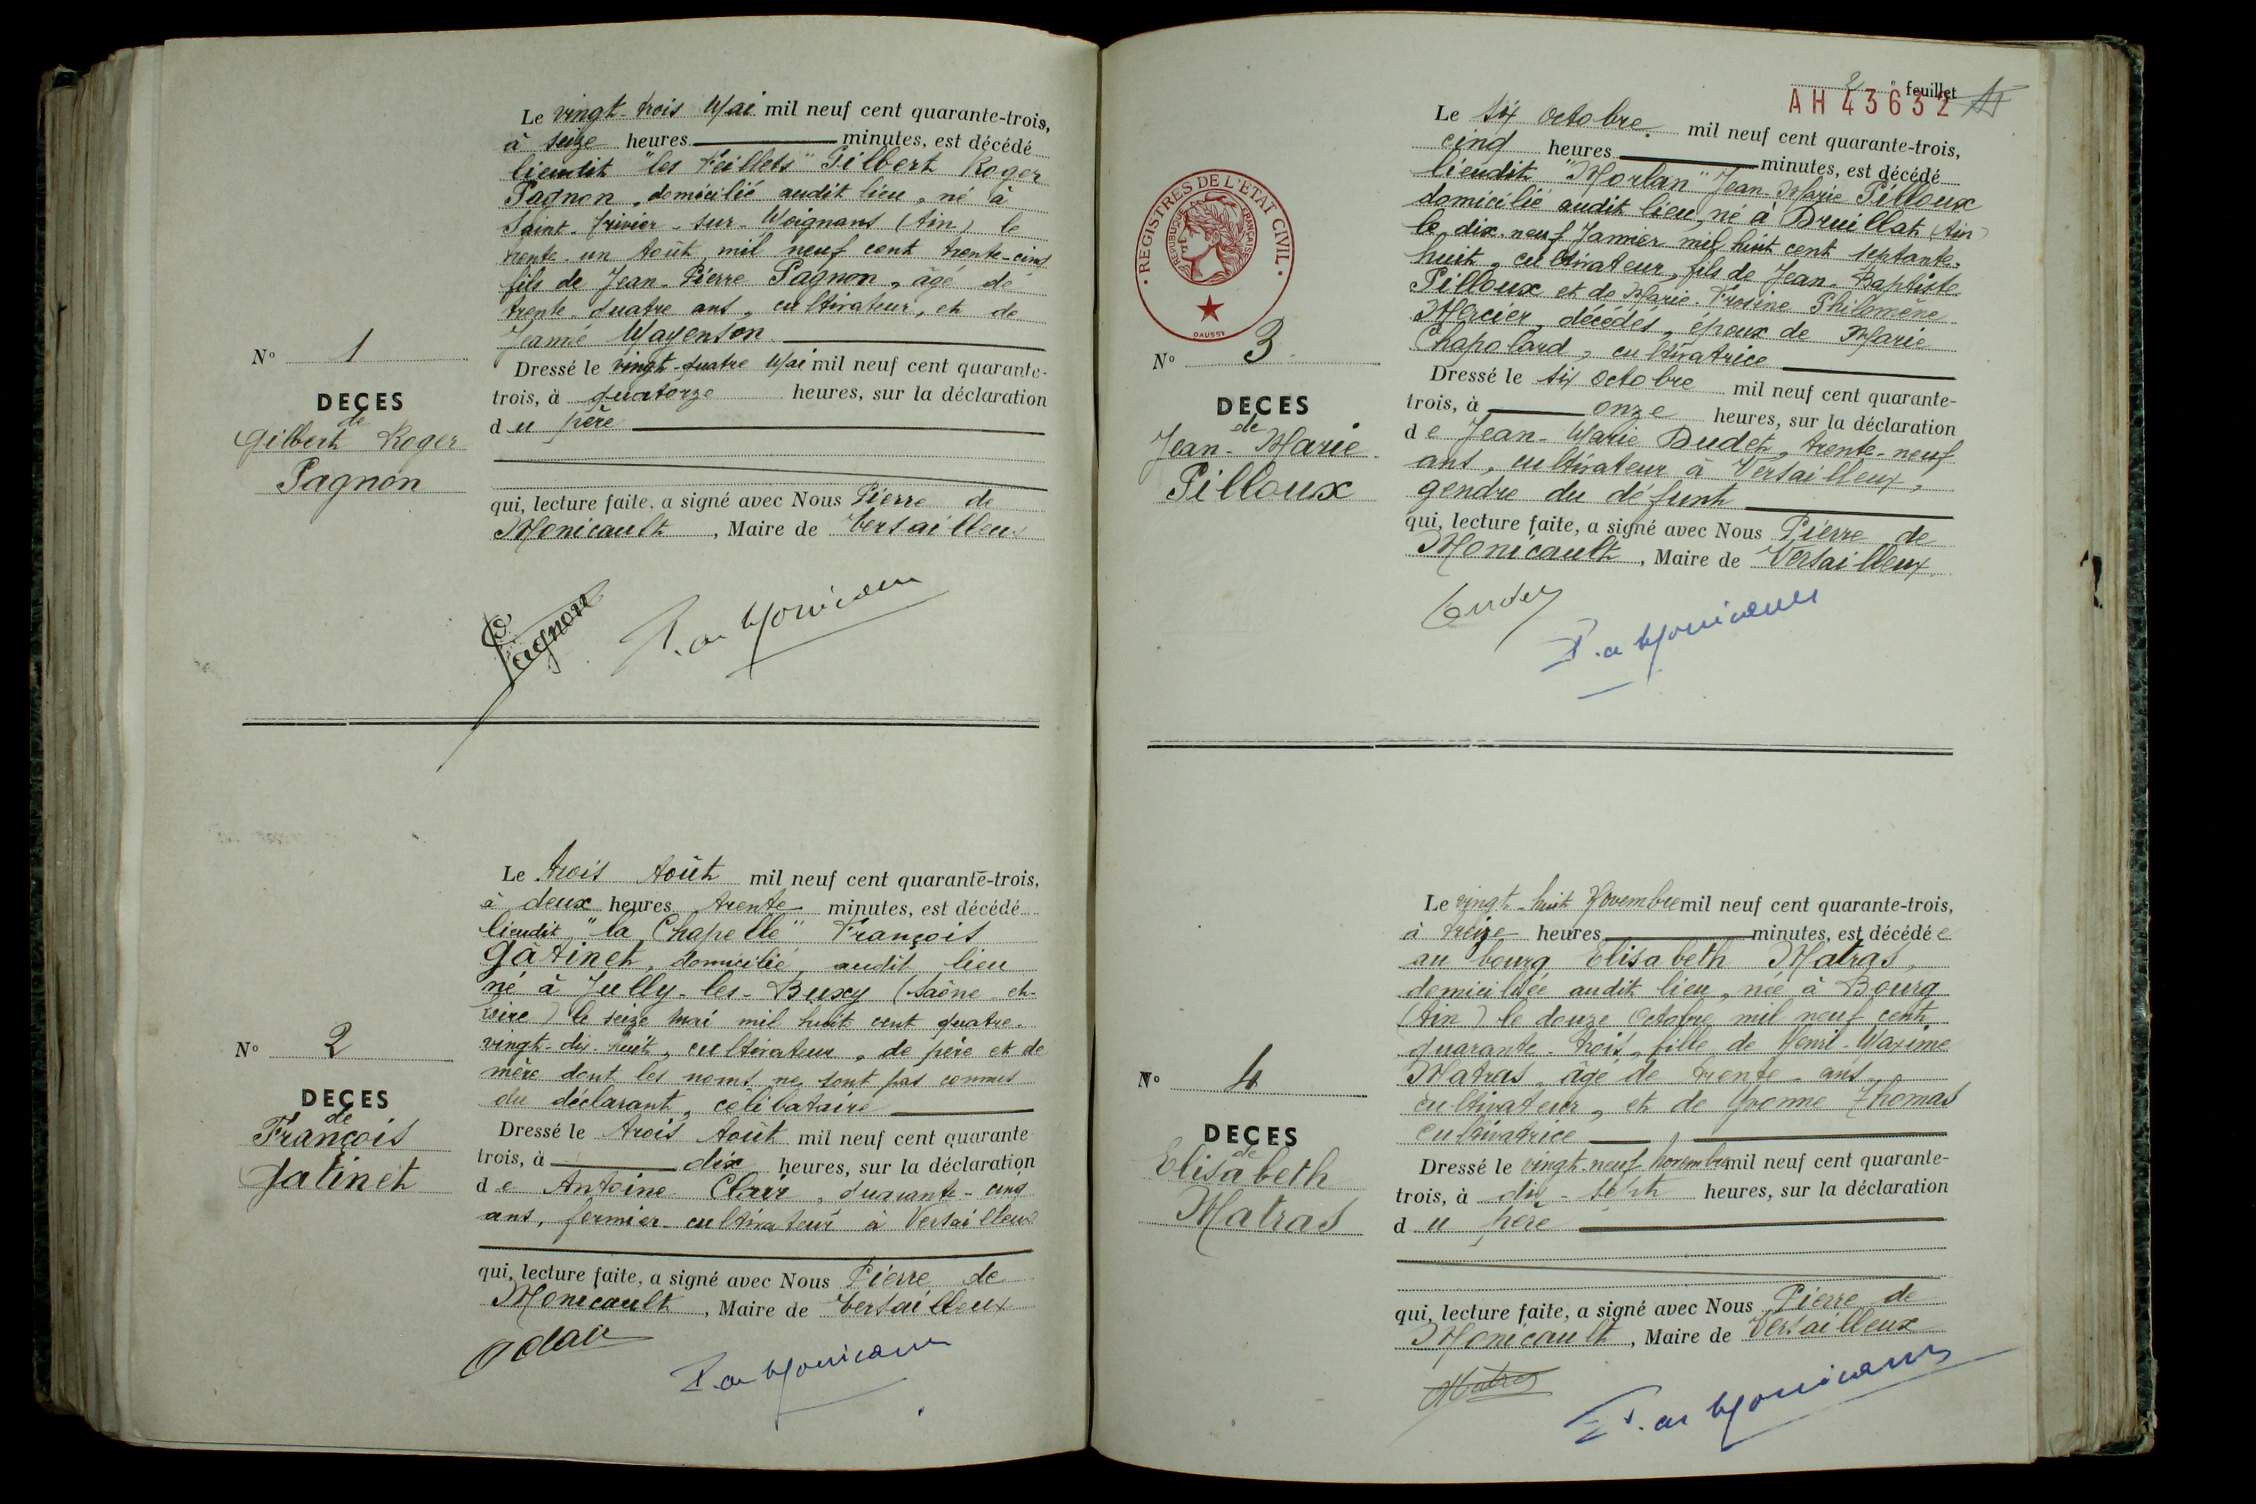 Le vingt-trois Mai mil neuf cent quarante-trois,
à seize heures minutes, est décédé
lieudit "les Feillets" Gilbert Roger
Pagnon, domicilié audit lieu, né à
Saint-Trivier-sur-Moignans (Ain) le
trente-un Août mil neuf cent trente-cinq
fils de Jean-Pierre Pagnon, âgé de
trente-quatre ans, cultivateur, et de
Jeanne Mayenson
Dressé le vingt-quatre Mai mil neuf cent quarante-
trois, à quatorze heures, sur la déclaration
du père
qui, lecture faite, a signé avec Nous Pierre de
Monicault, Maire de Versailleux
N° 1
DECES
de
Gilbert Roger
Pagnon
Pagnon
P. de Monicault
Le trois Août mil neuf cent quarante-trois,
à deux heures trente minutes, est décédé
lieudit "la Chapelle" François
Gâtinet, domicilié audit lieu
né à Jully-les-Buxy (Saône-et-
Loire) le seize mai mil huit cent quatre-
vingt-dix-huit, cultivateur, de père et de
mère dont les noms ne sont pas connus
du déclarant, célibataire
Dressé le trois Août mil neuf cent quarante
trois, à dix heures, sur la déclaration
de Antoine Clair, quarante-cinq
ans, fermier-cultivateur à Versailleux
qui, lecture faite, a signé avec Nous Pierre de
Monicault, Maire de Versailleux
N° 2
DECES
de
François
Gatinet
A Clair
P. de Monicault
2e feuillet
AH 43632
REGISTRES DE L'ETAT CIVIL
REPUBLIQUE FRANÇAISE
DAUSSY
Le six Octobre mil neuf cent quarante-trois,
cinq heures minutes, est décédé
lieudit "Morlan" Jean-Marie Pilloux
domicilié audit lieu, né à Druillat (Ain)
le dix-neuf Janvier mil huit cent septante-
huit, cultivateur, fils de Jean-Baptiste
Pilloux et de Marie-Frosine Philomène
Mercier, décédés, époux de Marie
Chapolard, cultivatrice
Dressé le six Octobre mil neuf cent quarante-
trois, à onze heures, sur la déclaration
de Jean-Marie Dudet, trente-neuf
ans, cultivateur à Versailleux,
gendre du défunt
qui, lecture faite, a signé avec Nous Pierre de
Monicault, Maire de Versailleux
N° 3
DECES
de
Jean-Marie
Pilloux
P. de Monicault
Le vingt-huit Novembre mil neuf cent quarante-trois,
à treize heures minutes, est décédée
au bourg Elisabeth Matras,
domiciliée audit lieu, née à Bourg
(Ain) le douze Octobre mil neuf cent
quarante-trois, fille de Henri-Maxime
Matras, âgé de trente ans,
cultivateur, et de Yvonne Thomas
cultivatrice
Dressé le vingt-neuf Novembre mil neuf cent quarante-
trois, à dix-sept heures, sur la déclaration
du père
qui, lecture faite, a signé avec Nous Pierre de
Monicault, Maire de Versailleux
N° 4
DECES
de
Elisabeth
Matras
Matras
P. de Monicault